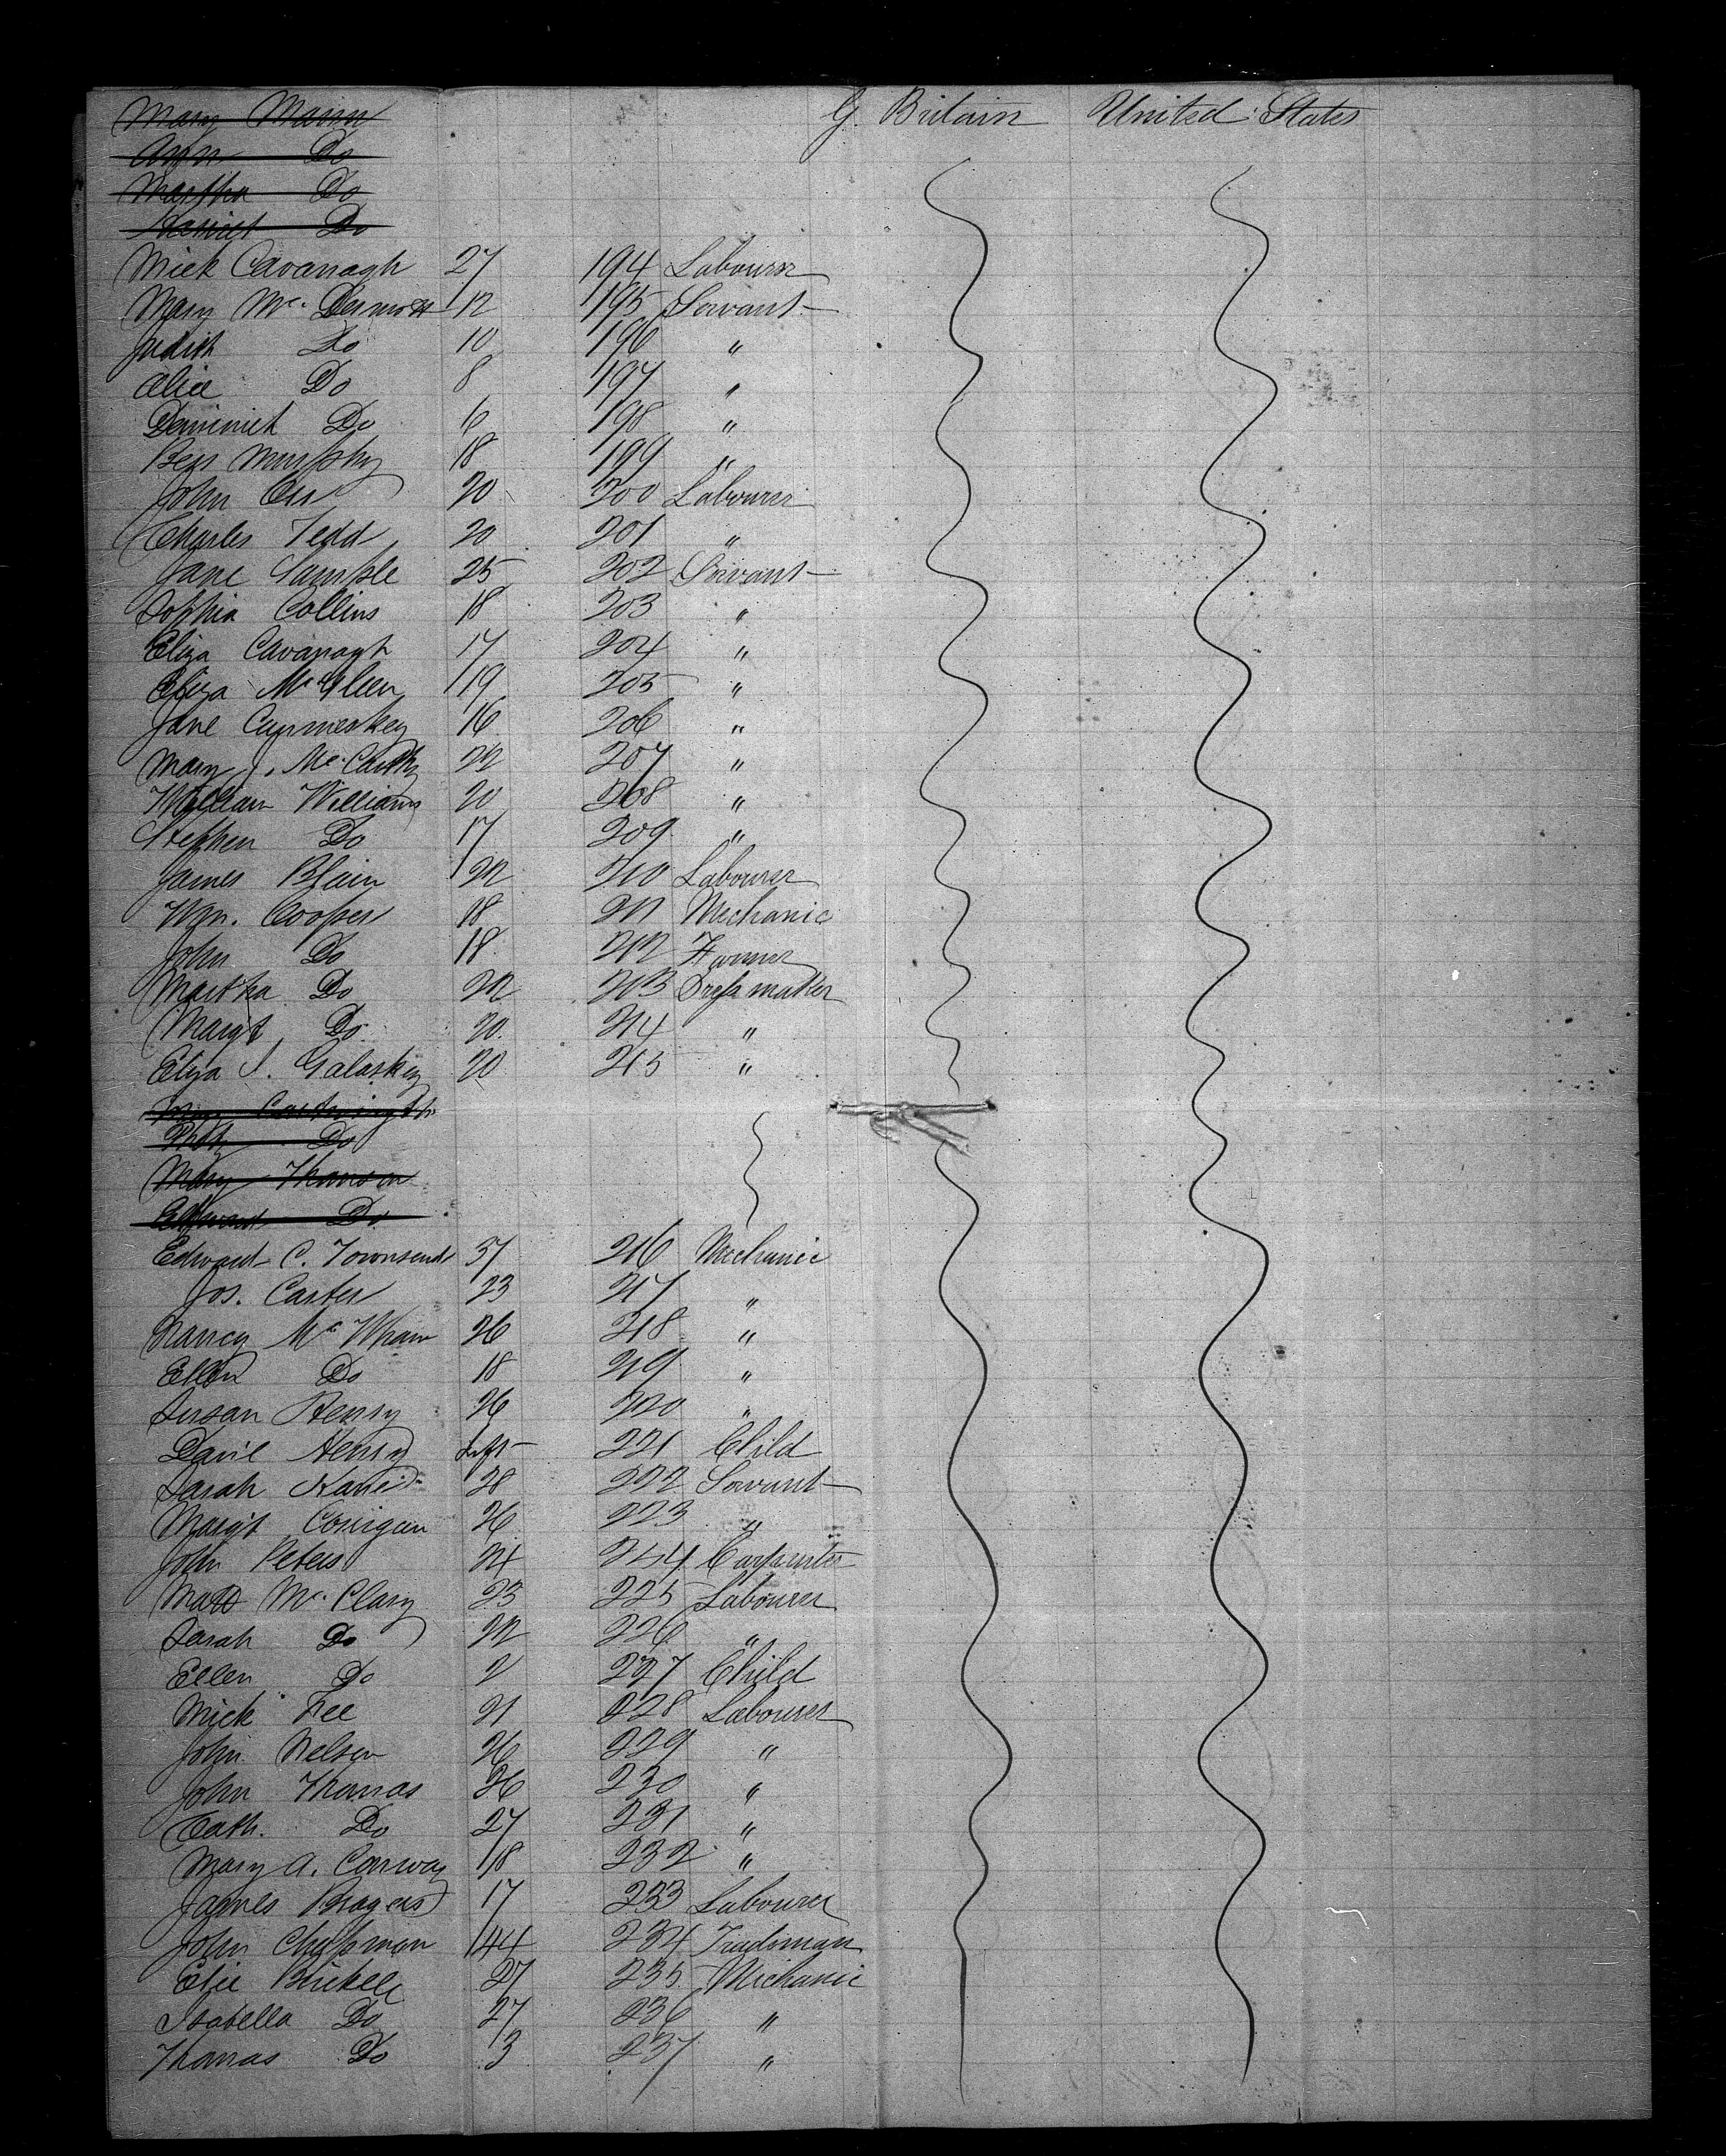 Mary Mann G. Britain United States
Ann Do
Martha Do
Harriet Do
Mick Cavanagh 27 194 Labourer
Mary Mc. Dermott 12 195 Servant
Judith Do 10 196 "
Alice Do 8 197 "
Dominick Do 6 198 "
Bess Murphy 18 199 "
John Orr 20 200 Labourer
Charles Tedd 20 201 "
Jane Sample 25 202 Servant
Sophia Collins 18 203 "
Eliza Cavanagh 17 204 "
Eliza 19 205 "
Jane 16 206 "
Mary J. Mc. Carthy 22 207 "
William Williams 20 208 "
Stephen Do 17 209 "
James Blain 22 210 Labourer
Wm. Cooper 18 211 Mechanic
John Do 18 212 Farmer
Martha Do 22 213 Dress maker
Margt Do 20 214 "
Eliza J. Galaskey 20 215 "
Cartwright
Do
Mary
Edward Do
Edward C. Townsend 37 216 Mechanic
Jos. Carter 23 217 "
Nancy Mc Whaw 26 218 "
Ellen Do 18 219 "
Susan Henry 26 220 "
David Henry Inft 221 Child
Sarah 28 222 Servant
Margt Corrigan 26 223 "
John Peters 24 224 Carpenter
Matt Mc. Clary 23 225 Labourer
Sarah Do 22 226 "
Ellen Do 2 227 Child
Mick Fee 21 228 Labourer
John Nelson 26 229 "
John Thomas 26 230 "
Cath. Do 27 231 "
Mary A. Conway 18 232 "
James Rogers 17 233 Labourer
John Chapman 44 234 Tradsman
27 235 Mechanic
Isabella Do 27 236 "
Thomas Do 3 237 "